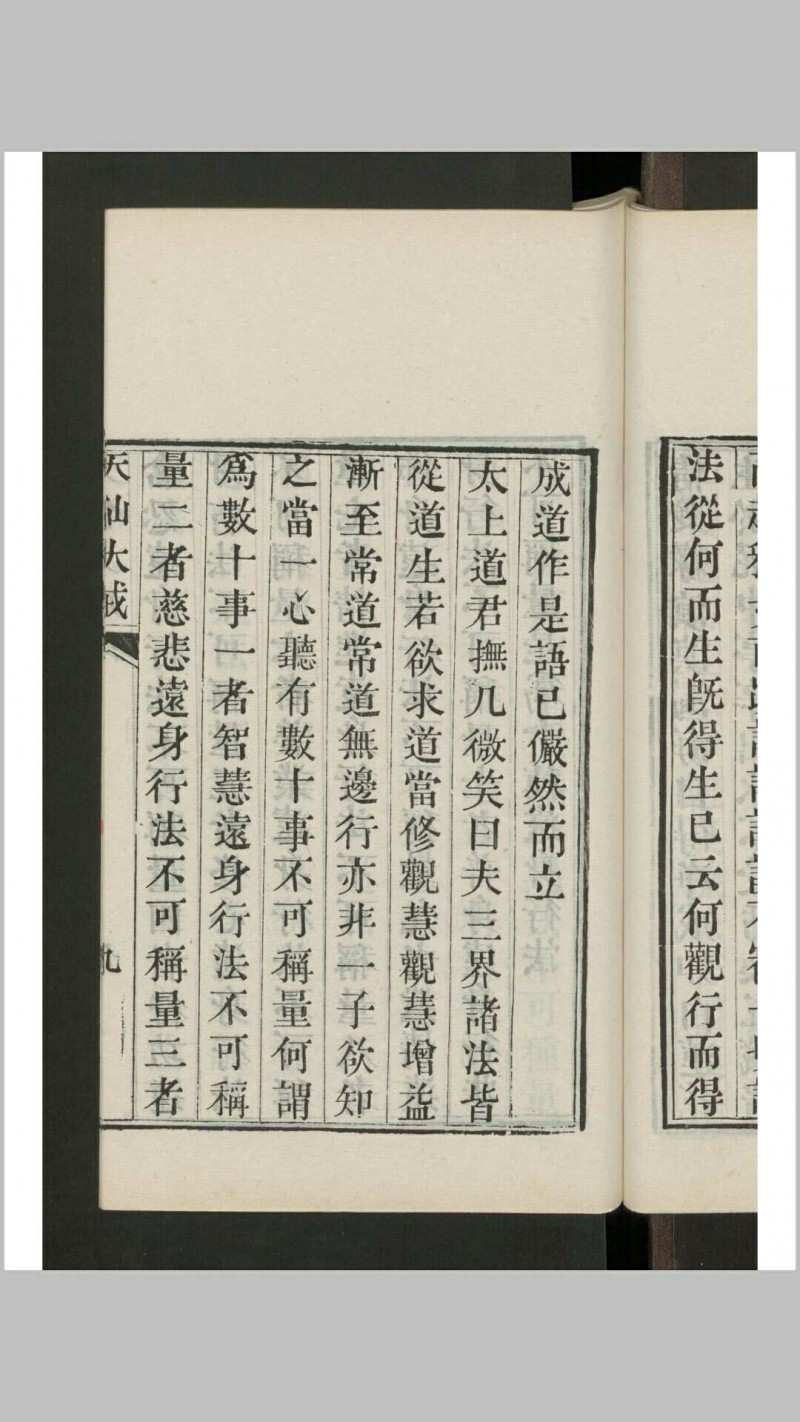 法從何而生旣得生已云何觀行而得
成道作是語已儼然而立
太上道君撫几微笑曰夫三界諸法皆
從道生若欲求道當修觀慧觀慧增益
漸至常道常道無邊行亦非一子欲知
之當一心聽有數十事不可稱量何謂
爲數十事一者智慧遠身行法不可稱
量二者慈悲遠身行法不可稱量三者
天仙大戒
九